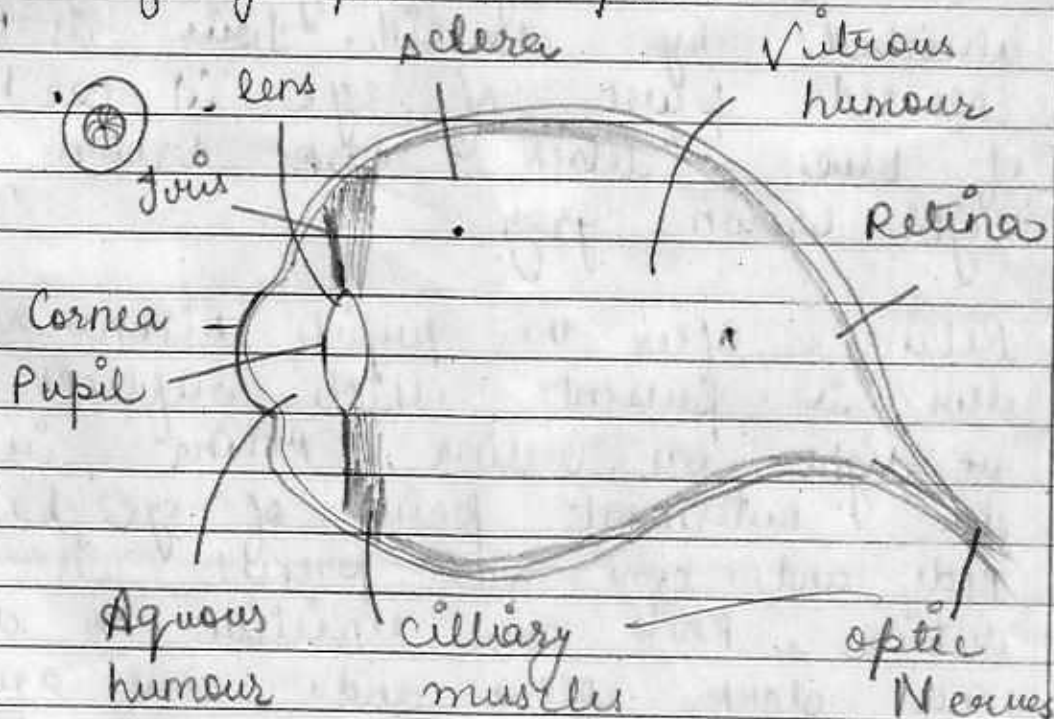 Sclera
Vitrous
humour
lens
Iris
Retina
Cornea
Pupil
Aquous
humour
Cilliary
muscles
optic
Nerves